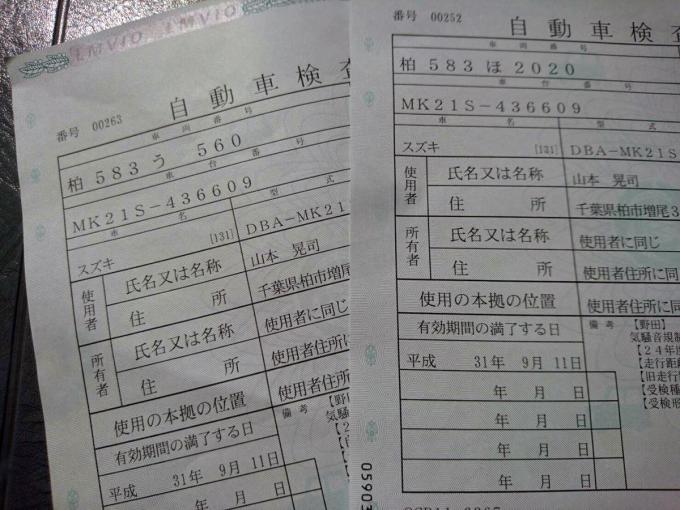 LMVIO LMVIO
番号 00263
自動車検査
車両番号
柏 583 う 560
車台番号
MK21S-436609
車名
型式
スズキ
[131]
DBA-MK21
使用者
氏名又は名称
山本 晃司
住所
千葉県柏市増尾
所有者
氏名又は名称
使用者に同じ
住所
使用者住所に同
使用の本拠の位置
使用者住所
有効期間の満了する日
備考
【野
気騒
【2
平成 31年 9月 11日
年 月 日
番号 00252
自動車検査
車両番号
柏 583 ほ 2020
車台番号
MK21S-436609
車名
型式
スズキ
[131]
DBA-MK21S
使用者
氏名又は名称
山本 晃司
住所
千葉県柏市増尾3
所有者
氏名又は名称
使用者に同じ
住所
使用者住所に同
使用の本拠の位置
使用者住所に同
有効期間の満了する日
備考
【野田】
気騒音規制
【24年度
【走行距離
【旧走行
【受検種
【受検形
平成 31年 9月 11日
年 月 日
年 月 日
年 月 日
年 月 日